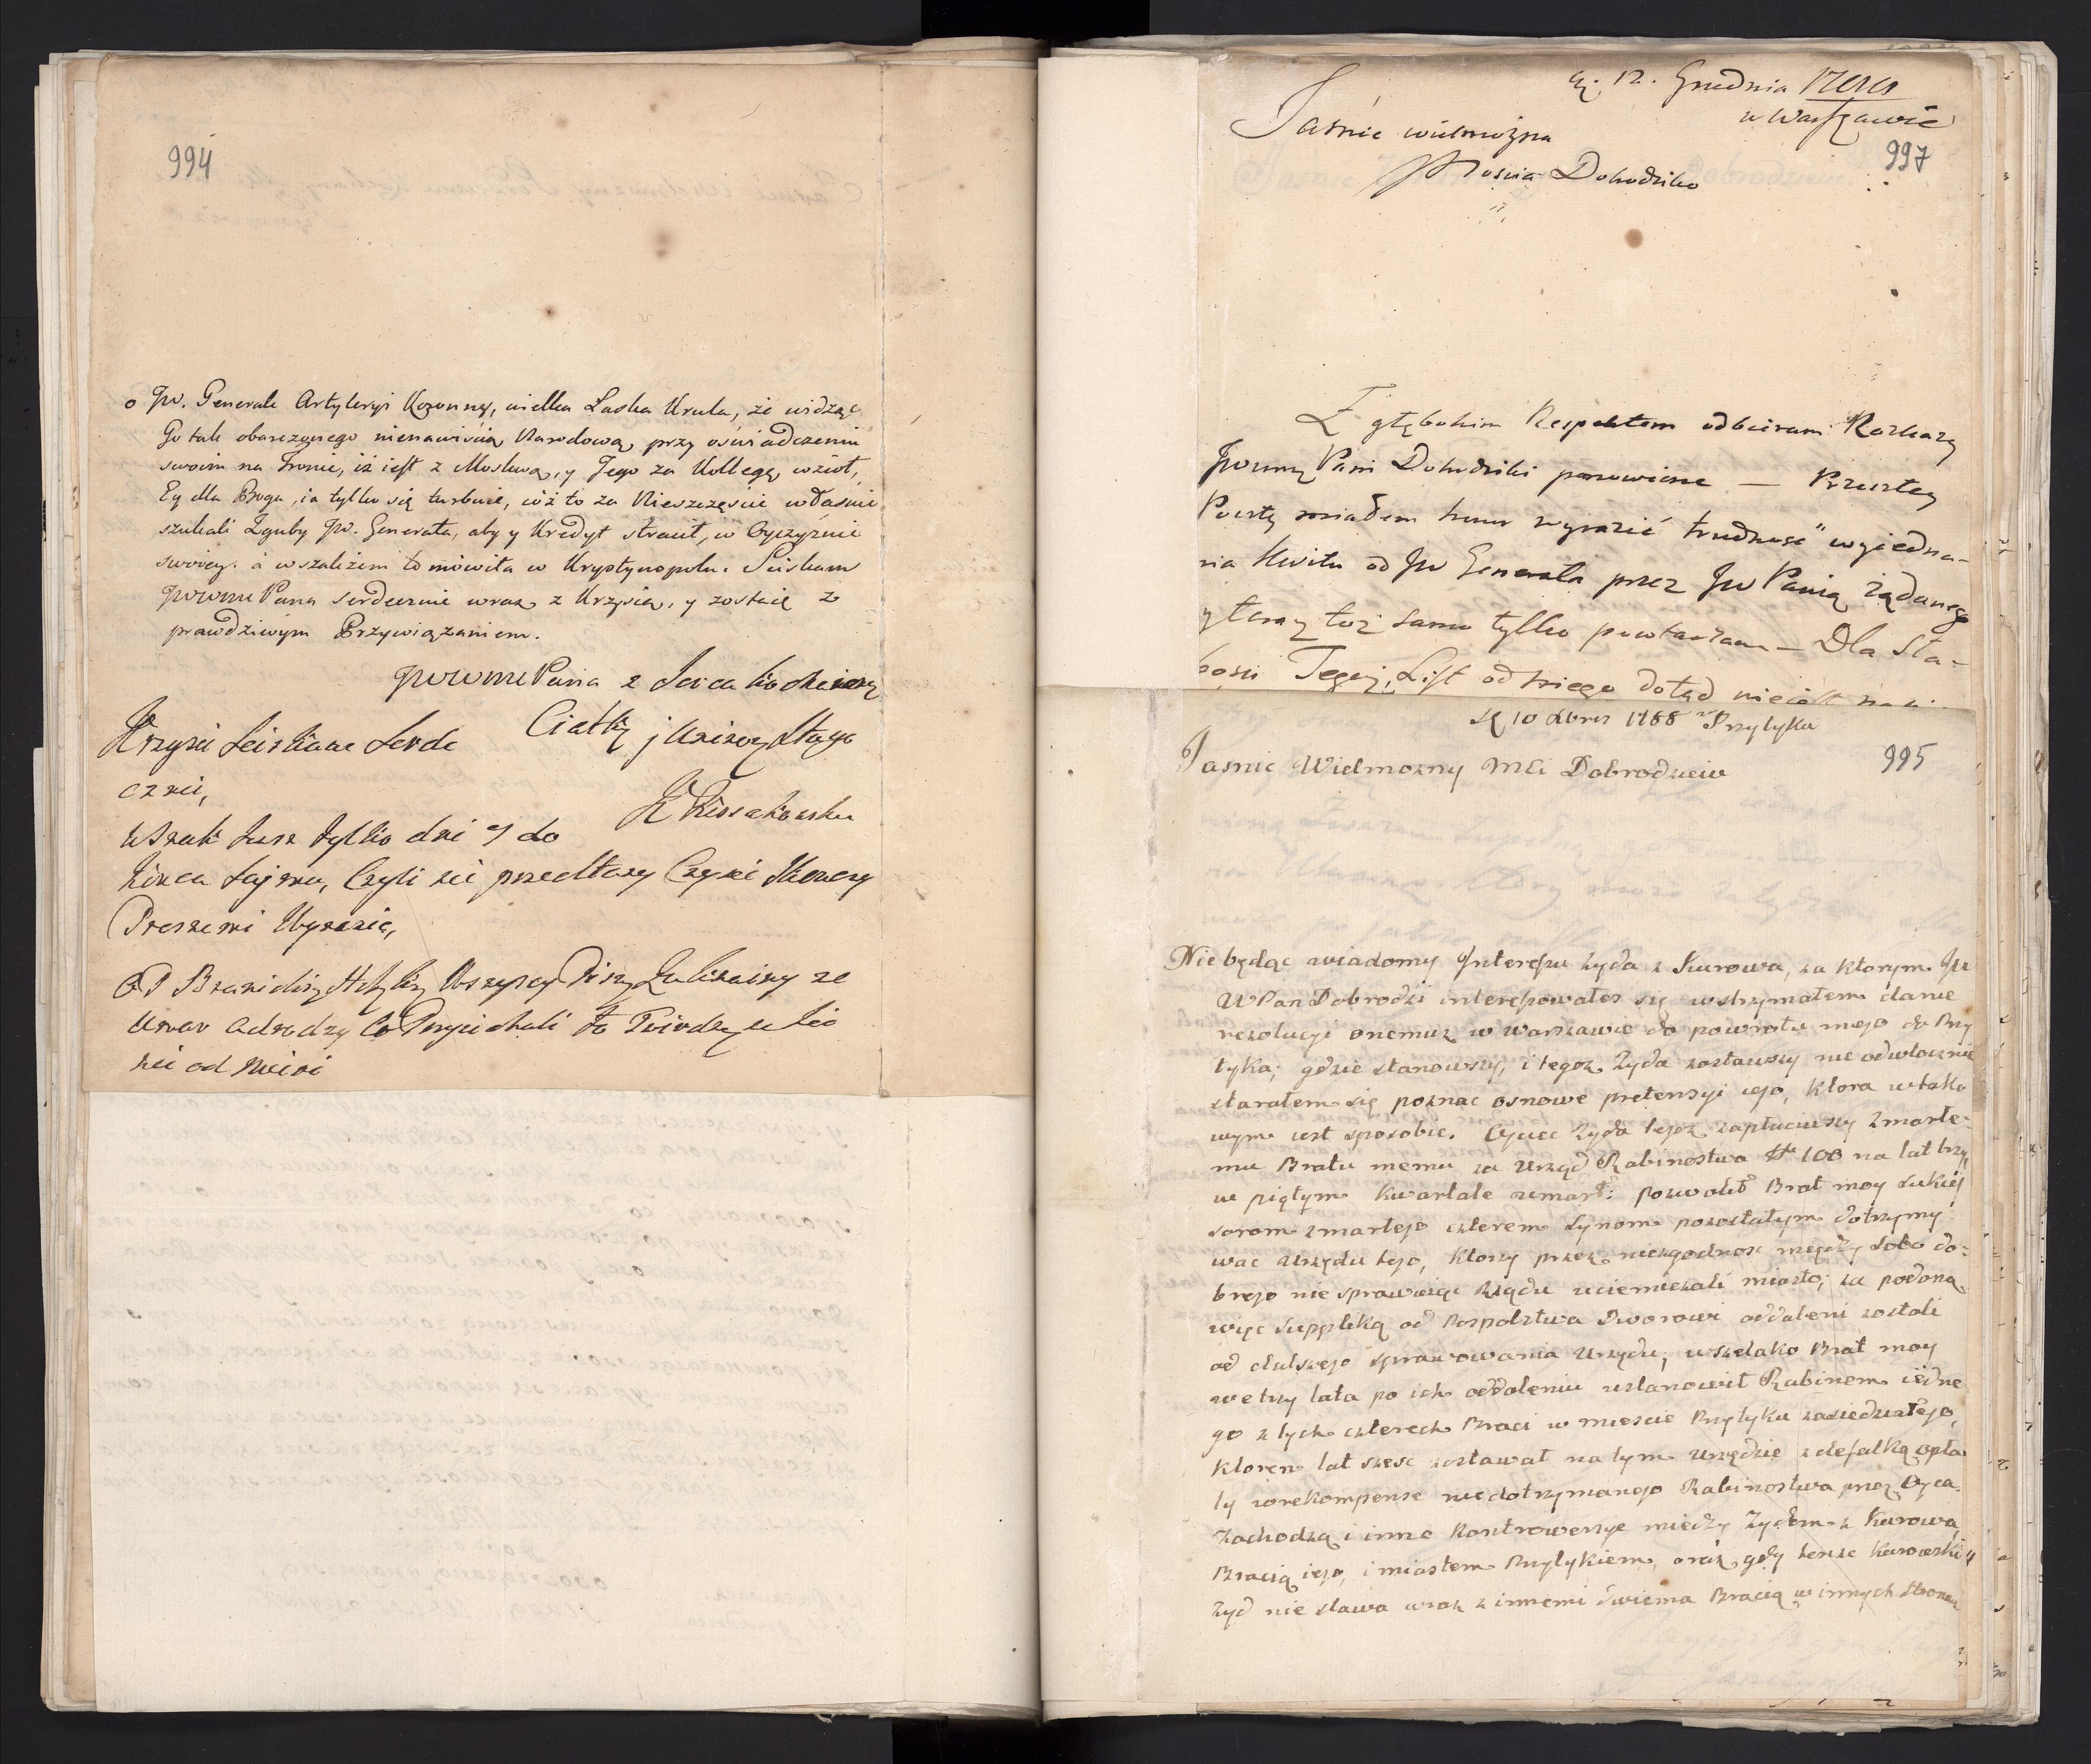 994
o JW. Generale Artyleryi Koronney, wielka Łaska Krula, że widząc
Go tak obarczonego nienawiścią Narodową, przy oświadczeniu
swoim na Tronie, iż iest z Moskwą, y Jego za Kollegę wzioł,
Ey dla Boga, ia tylko się turbuie, cóż to za Nieszczęście właśnie
szukali Zguby JW. Generała, aby y Kredyt stracił, w Oyczyźnie
swoiey. a wszakżem to mówiła w Krystynopolu. Sciskam
JWWMPana serdecznie wraz z Krzysią, y zostaię z
prawdziwym Przywiązaniem.
JWWMPana z Serca
Ciotką
Krzysi Sciskam Serde
cznie,
K Kossakowska
wszak Jusz tylko dni 9 do
Konca Sajmu, Czyli nie przedłuzy
od
cz. 12. Grudnia
w Warszawie
Jaśnie wielmożna
Mościa Dobodziko
997
Z głębokim Respektem odbieram Rozkazy
JWWMy Pani Dobodziki ponowione — Przeszłey
Poczty miałem honor wyrazić trudność wyiedna-
nia Kwitu od JW Generała przez JW Panią żądanego
y teraz toż samo tylko powtarzam — Dla Sła-
bości Tegoż, List od niego dotąd nie iest
10 1788 Przytyka
Jasnie Wielmozny Mći Dobrodzieiu
995
Nie będąc wiadomy Interessu żyda z Kurowa, za ktorym JW
WPan Dobrodzi interessowałes się wstrzymałem danie
rezolucyi onemuz w Warszawie do powrotu mego do Przy
tyka; gdzie stanowszy, i tegoz Zyda zastawszy nie odwłocznie
starałem się poznac osnowe pretensyi iego, ktora w tako
wym iest sposobie. Oyciec zyda tegoz zapłaciwszy zmarłe-
mu Bratu memu za Urząd Rabinostwa # 100 na lat trzy,
w piątym kwartale umarł: pozwolił Brat moy sukces
sorom zmarłego czterem synom pozostałym dotrzymy
wac urzędu tego, ktorzy przez niezgodnosc między sobo do-
brego nie sprawuiąc Rządu uciemiezali miasto; za podaną
więc supplikę od Pospolstwa Dworowi oddaleni zostali
od dalszego sprawowania Urzędu; wszelako Brat moy
we trzy lata po ich oddaleniu ustanowił Rabinem iedne
go z tych czterech Braci w miescie Przytyku zasiedziałego,
ktoren lat szesc zostawał na tym urzędzie z defalką opła
ty rekompense niedotrzymanego Rabinostwa przez Oyca.
Zachodzą i inne kontrowersye miedzy Zydem z Kurowa,
Bracią iego, i miastem Przytykiem, oraz gdy tenże Kurowski
Zyd nie stawa wraz z innemi dwiema Bracią w innych stronach